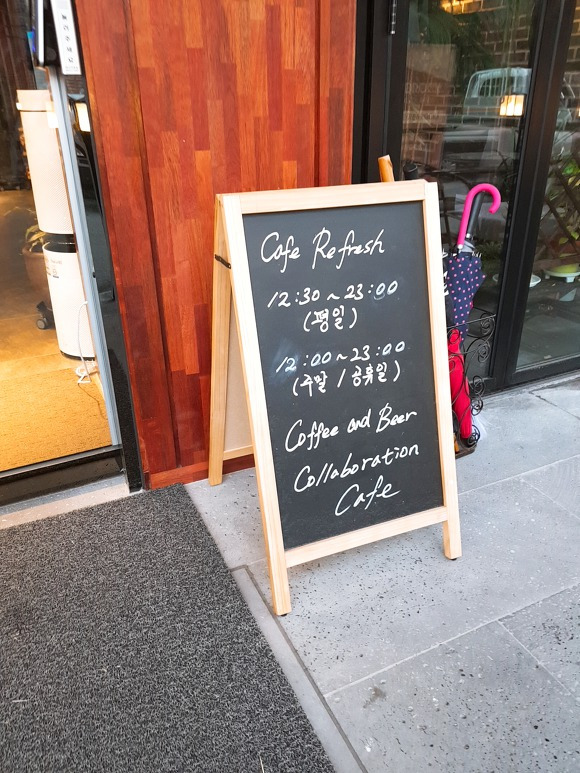 Cafe Refresh
12:30 ~ 23:00
(평일)
12:00 ~ 23:00
(주말 / 공휴일)
Coffee and Beer
Collaboration
Cafe